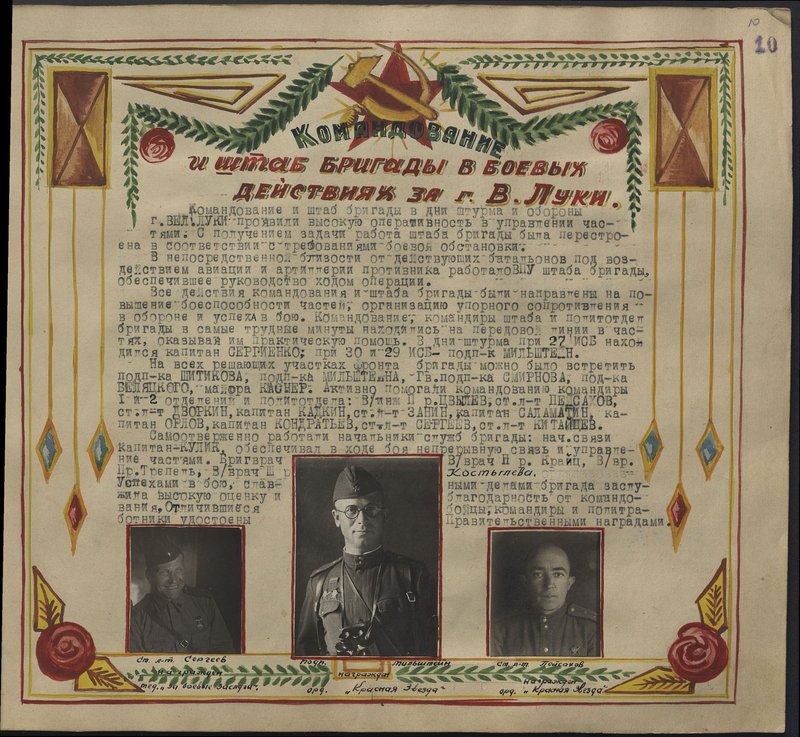 10
10
Командование
и штаб бригады в боевых
действиях за г. В. Луки.
Командование и штаб бригады в дни штурма и обороны
г. ВЕЛ.ЛУКИ проявили высокую оперативность в управлении час-
тями. С получением задачи работа штаба бригады была перестро-
ена в соответствии с требованиями боевой обстановки.
В непосредственной близости от действующих батальонов под воз-
действием авиации и артиллерии противника работало ВПУ штаба бригады,
обеспечившее руководство ходом операции.
Все действия командования и штаба бригады были направлены на по-
вышение боеспособности частей, организацию упорного сопротивления
в обороне и успеха в бою. Командование, командиры штаба и политотдел
бригады в самые трудные минуты находились на передовой линии в час-
тях, оказывая им практическую помощь. В дни штурма при 27 ИСБ нахо-
дился капитан СЕРГИЕНКО; при 30 и 29 ИСБ- подп-к МИЛЬШТЕЙН.
На всех решающих участках фронта бригады можно было встретить
подп-ка ШИТИКОВА, подп-ка МИЛЬШТЕЙНА, Гв.подп-ка СМИРНОВА, под-ка
БЕЛЯЦКОГО, майора Активно помогали командованию командиры
1 и 2 отделений и политотдела: В/инж I р.ЦВЫЛЕВ, ст.л-т ПЕЙСАХОВ,
ст.л-т ДВОРКИН, капитан КАДКИН, ст.л-т ЗАНИН, капитан САЛАМАТИН, ка-
питан ОРЛОВ, капитан КОНДРАТЬЕВ, ст.л-т СЕРГЕЕВ, ст.л-т КИТАЙЦЕВ.
Самоотверженно работали начальники служб бригады: нач.связи
капитан-КУЛИК, обеспечивал в ходе боя непрерывную связь и управле-
ние частями. Бригврач В/врач II р. Крайц, В/вр.
Пр.Трепель, В/врач III р Костылева.
Успехами в бою, слав- ными делами бригада заслу-
жила высокую оценку и благодарность от командо-
вания. Отличившиеся бойцы, командиры и политра-
ботники удостоены Правительственными наградами.
ст. л-т Сергеев
награжден
мед. "За боевые заслуги".
подп. Мильштейн
награжден
орд. "Красная Звезда"
ст. л-т Пейсахов
награжден
орд. "Красная Звезда"